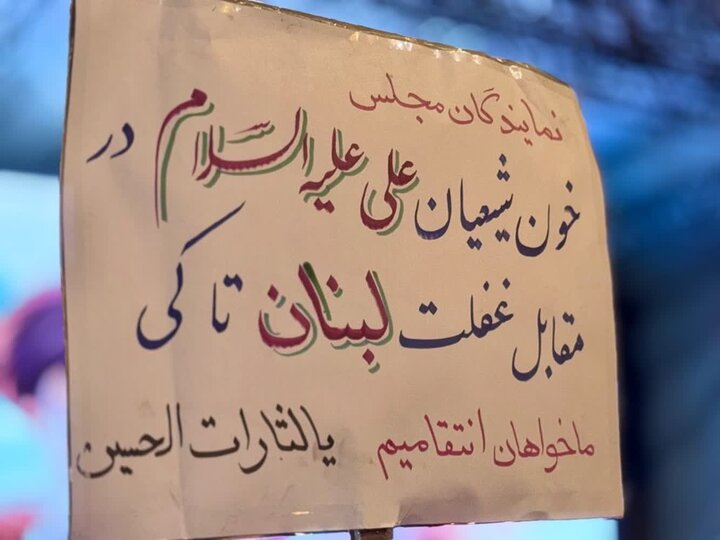 نمایندگان مجلس
خون شیعیان علی علیه السلام در
مقابل غفلت لبنان تا کی
ماخواهان انتقامیم یالثارات الحسین